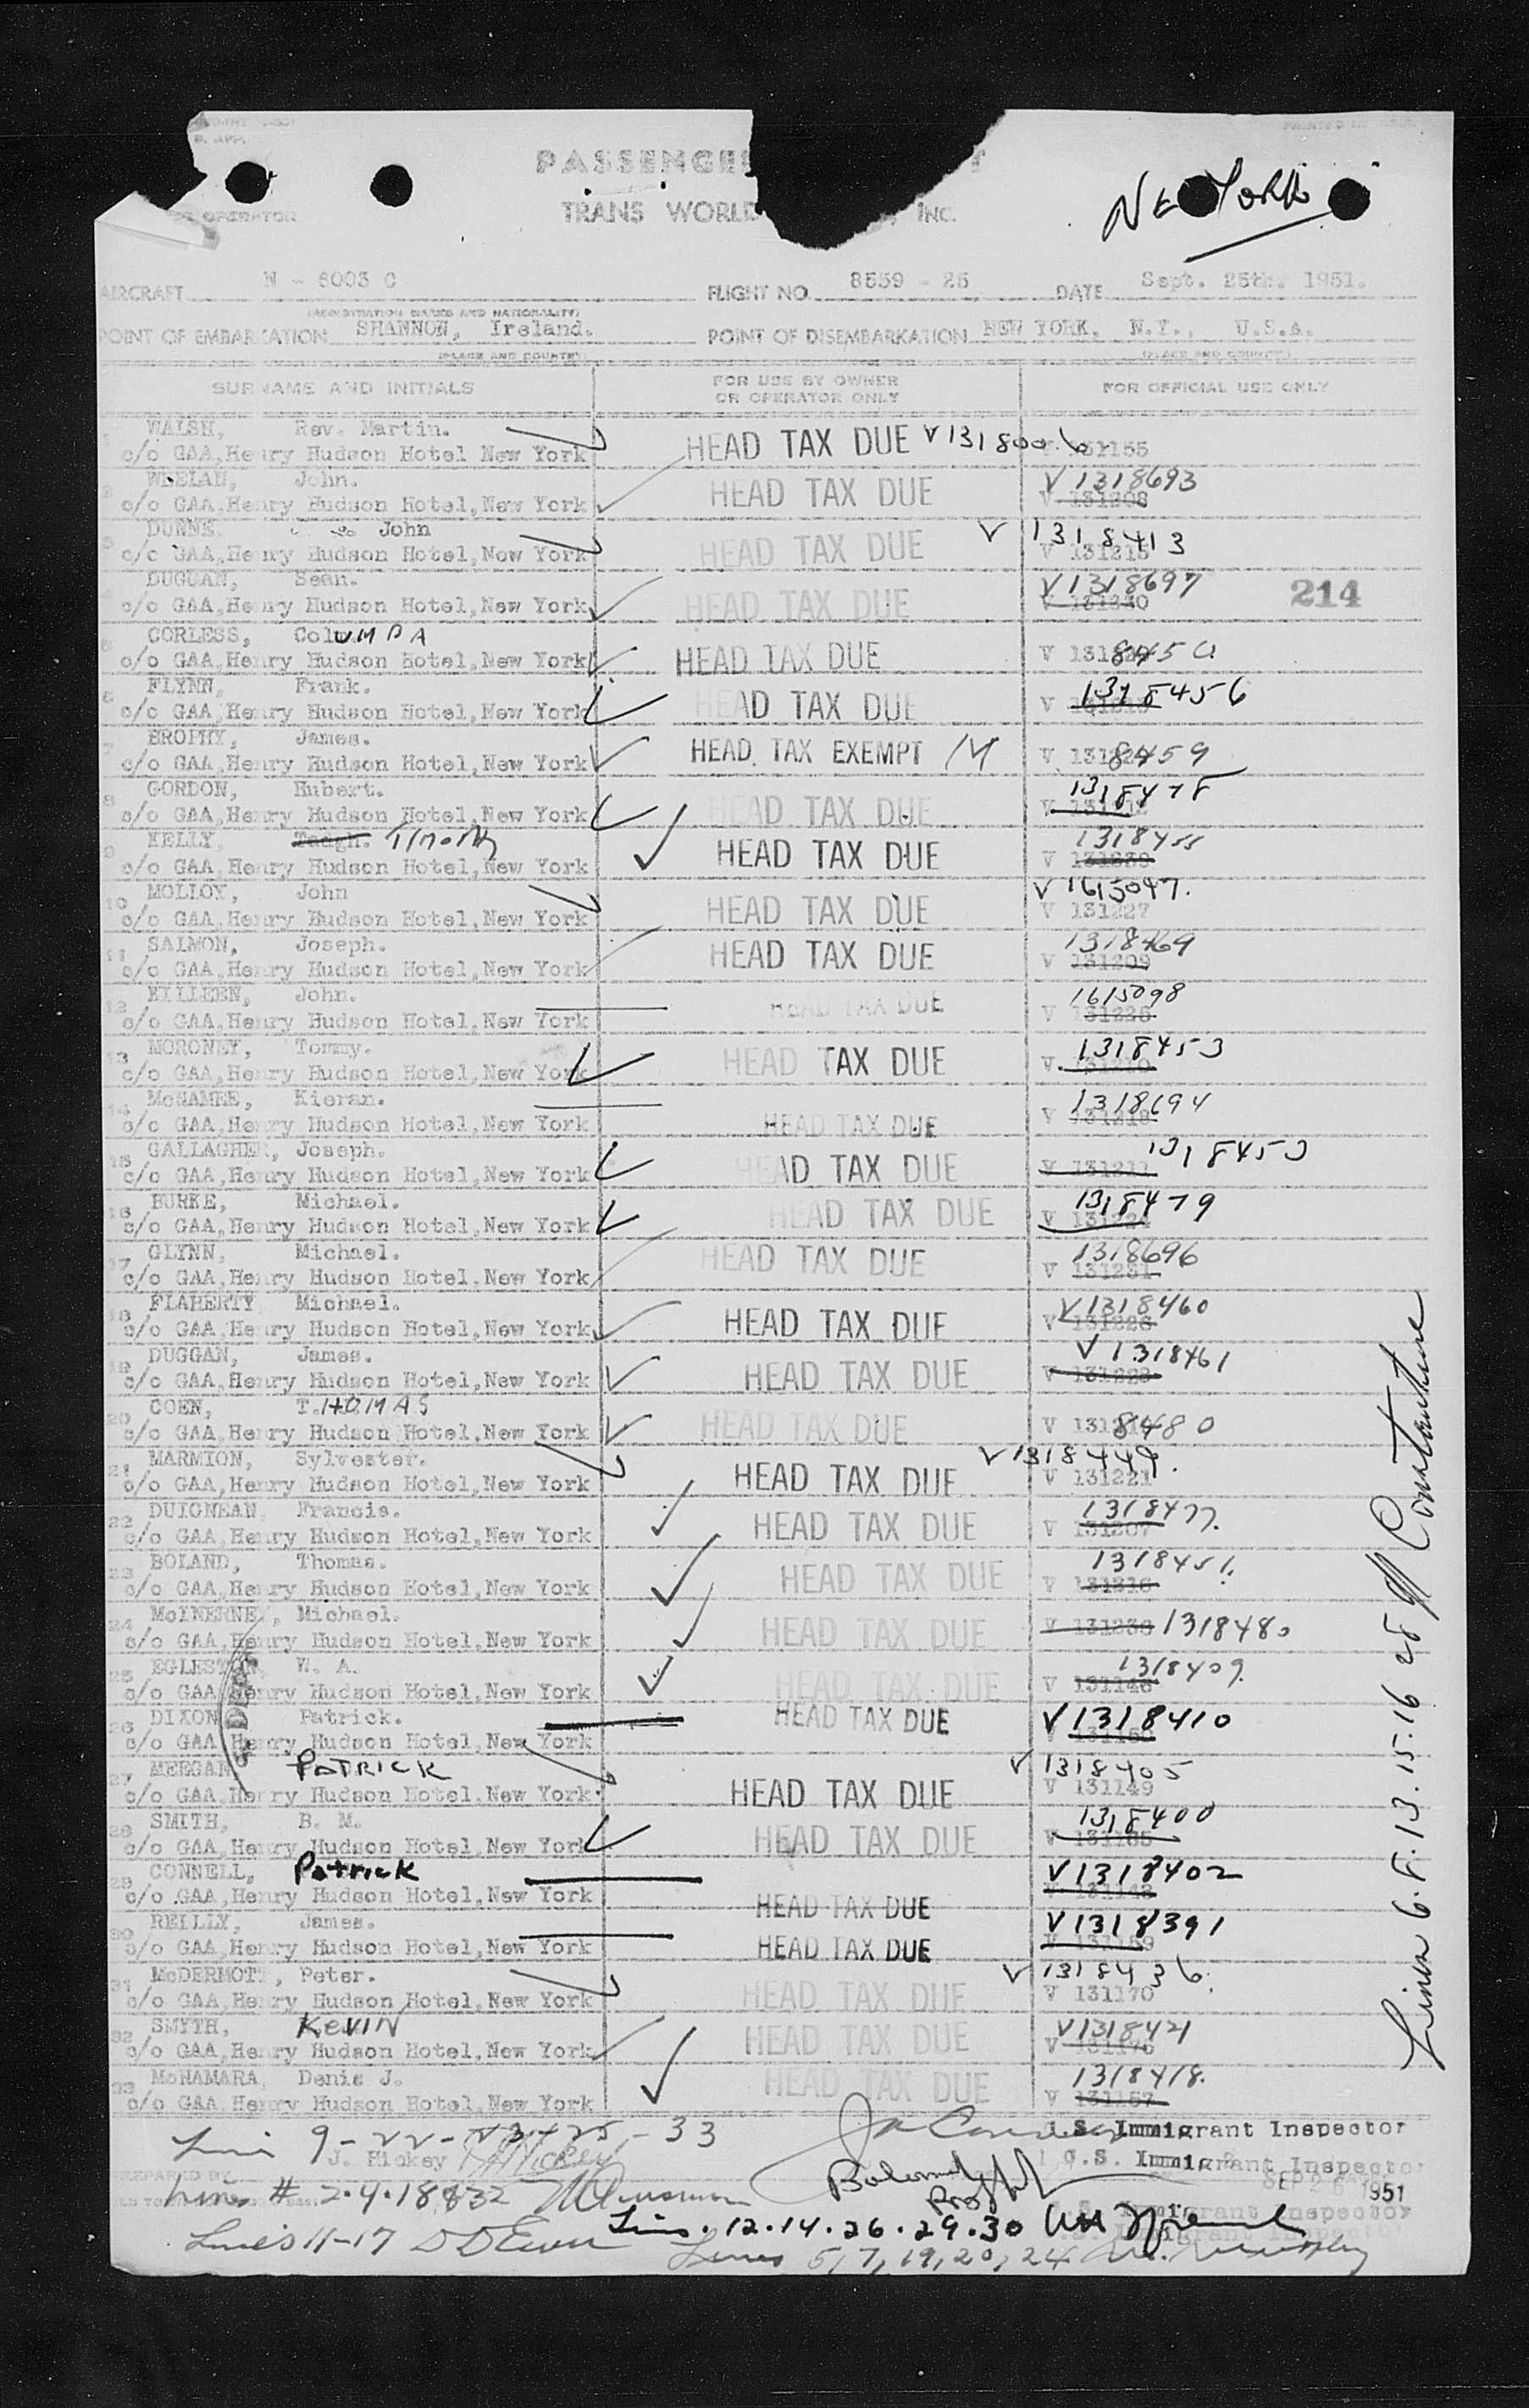 PASSENGER
OPERATOR
TRANS WORLD INC.
NEW YORK
AIRCRAFT N - 6003 C FLIGHT NO. 8559 - 25 DATE Sept. 25th. 1951.
(REGISTRATION MARKS AND NATIONALITY)
POINT OF EMBARKATION SHANNON, Ireland. POINT OF DISEMBARKATION NEW YORK, N.Y., U.S.A.
(PLACE AND COUNTRY) (PLACE AND COUNTRY)
SURNAME AND INITIALS FOR USE BY OWNER OR OPERATOR ONLY FOR OFFICIAL USE ONLY
1 WALSH, Rev. Martin.
c/o GAA, Henry Hudson Hotel New York HEAD TAX DUE 131155
2 WHELAN, John. V 1318693
c/o GAA, Henry Hudson Hotel, New York HEAD TAX DUE V 131208
3 DUNNE John V 1318413
c/o GAA, Henry Hudson Hotel, New York HEAD TAX DUE V 131215
4 DUGGAN, Sean. V 1318697 214
c/o GAA, Henry Hudson Hotel, New York HEAD TAX DUE
5 CORLESS, ColUMBA
c/o GAA, Henry Hudson Hotel, New York HEAD TAX DUE
6 FLYNN, Frank. 1318456
c/o GAA, Henry Hudson Hotel, New York HEAD TAX DUE
7 BROPHY, James.
c/o GAA, Henry Hudson Hotel, New York HEAD TAX EXEMPT 8459
8 GORDON, Hubert. 1318478
c/o GAA, Henry Hudson Hotel, New York HEAD TAX DUE
9 KELLY, Tadgh. Timothy 1318455
c/o GAA, Henry Hudson Hotel, New York HEAD TAX DUE V 131239
10 MOLLOY, John V 1615047.
c/o GAA, Henry Hudson Hotel, New York HEAD TAX DUE V 131227
11 SALMON, Joseph. 1318469
c/o GAA, Henry Hudson Hotel, New York HEAD TAX DUE V 131209
12 KILLEEN, John. 1615098
c/o GAA, Henry Hudson Hotel, New York HEAD TAX DUE V 131235
13 MORONEY, Tommy. 1318453
c/o GAA, Henry Hudson Hotel, New York HEAD TAX DUE V 131210
14 McNAMEE, Kieran. 1318694
c/o GAA, Henry Hudson Hotel, New York HEAD TAX DUE V 131218
15 GALLAGHER, Joseph.
c/o GAA, Henry Hudson Hotel, New York HEAD TAX DUE V 131211
16 BURKE, Michael. 1318479
c/o GAA, Henry Hudson Hotel, New York HEAD TAX DUE V 131224
17 GLYNN, Michael. 1318696
c/o GAA, Henry Hudson Hotel, New York HEAD TAX DUE V 131231
18 FLAHERTY Michael. V 1318460
c/o GAA, Henry Hudson Hotel, New York HEAD TAX DUE V 131226
19 DUGGAN, James. V 1318461
c/o GAA, Henry Hudson Hotel, New York HEAD TAX DUE V 131223
20 COEN, T.HOMAS
c/o GAA, Henry Hudson Hotel, New York HEAD TAX DUE 8480
21 MARMION, Sylvester. V 1318449.
c/o GAA, Henry Hudson Hotel, New York HEAD TAX DUE V 131221
22 DUIGNEAN, Francis. 1318477.
c/o GAA, Henry Hudson Hotel, New York HEAD TAX DUE V 131207
23 BOLAND, Thomas. 1318451.
c/o GAA, Henry Hudson Hotel, New York HEAD TAX DUE V 131216
24 McINERNEY, Michael.
c/o GAA, Henry Hudson Hotel, New York HEAD TAX DUE V 131236 1318480
25 EGLESTON, W. A. 1318409.
c/o GAA, Henry Hudson Hotel, New York HEAD TAX DUE V 131146
26 DIXON Patrick. HEAD TAX DUE V 1318410
c/o GAA, Henry Hudson Hotel, New York
27 MEEGAN PATRICK V 1318405
c/o GAA, Henry Hudson Hotel, New York HEAD TAX DUE V 131149
28 SMITH, B. M. 1318400
c/o GAA, Henry Hudson Hotel, New York HEAD TAX DUE
29 CONNELL, Patrick V 1318402
c/o GAA, Henry Hudson Hotel, New York HEAD TAX DUE V 131148
30 REILLY, James. V 1318391
c/o GAA, Henry Hudson Hotel, New York HEAD TAX DUE
31 McDERMOTT, Peter. V 1318436.
c/o GAA, Henry Hudson Hotel, New York HEAD TAX DUE V 131170
32 SMYTH, KEVIN V 1318421
c/o GAA, Henry Hudson Hotel, New York HEAD TAX DUE
33 McNAMARA, Denis J. 1318418.
c/o GAA, Henry Hudson Hotel, New York HEAD TAX DUE V 131157
U.S. Immigrant Inspector
J. Hickey
PREPARED BY
U.S. Immigrant Inspector
SEP 26 1951
Lines # 2.4.18 & 32
Immigrant Inspector
Lines. 12.14.26.29.30
Lines 11-17
Lines 5, 7, 19, 20, 24
Lines 6.8.13.15.16 28 Constantine